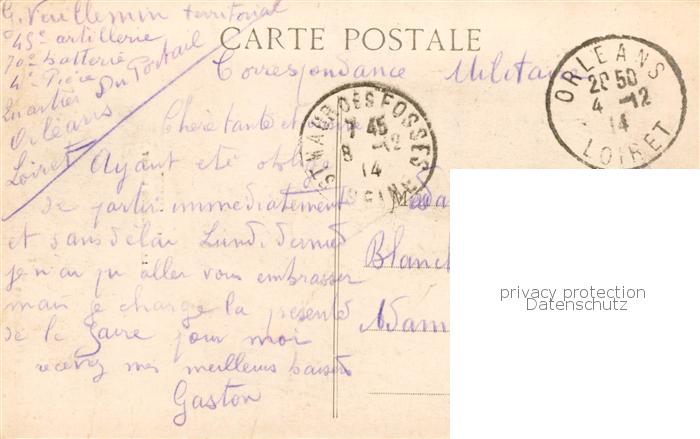 G. Vuillemin territorial
45e artillerie
70e batterie
4e Pièce
Quartier Du Portail
Orléans
Loiret
CARTE POSTALE
Correspondance Militaire
ORLEANS
20 50
4 -12
14
LOIRET
ST MAUR DES FOSSES
7 45
8 -12
14
SEINE
Chère tante et
Ayant eté obligé
de partir immédiatement
et sans délai Lundi dernier
je n'ai pu aller vous embrasser
mais je charge la présente
de le faire pour moi
recevez mes meilleurs baisers
Gaston
Mada
Blanch
Adam
privacy protection
Datenschutz